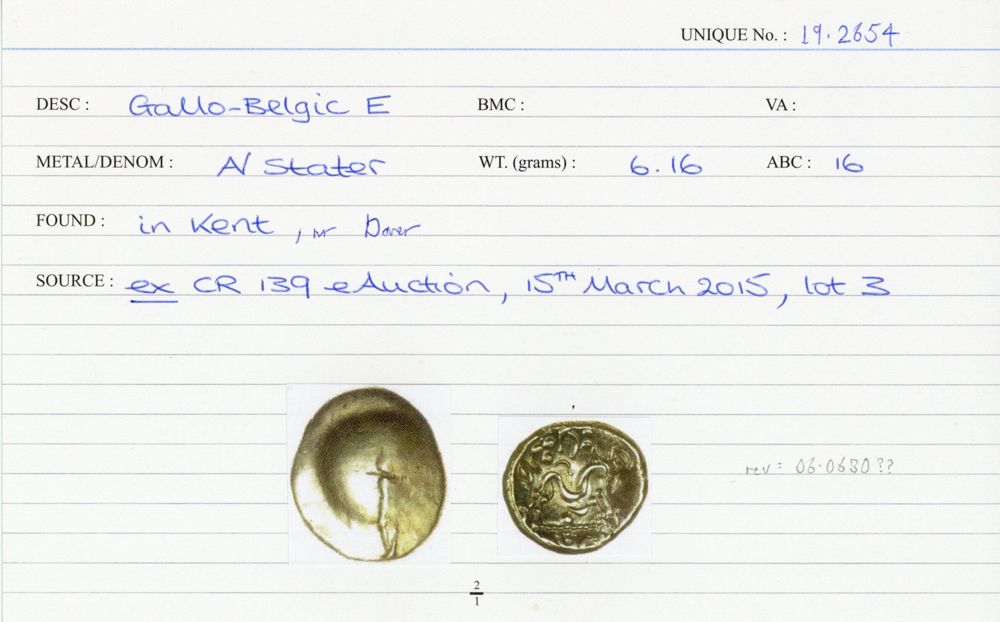 UNIQUE No. : 19.2654
DESC : Gallo-Belgic E BMC : VA :
METAL/DENOM : A/ Stater WT. (grams) : 6.16 ABC : 16
FOUND : in Kent, nr Dover
SOURCE : ex CR 139 eAuction, 15TH March 2015, lot 3
rev: 06.0680??
2
1